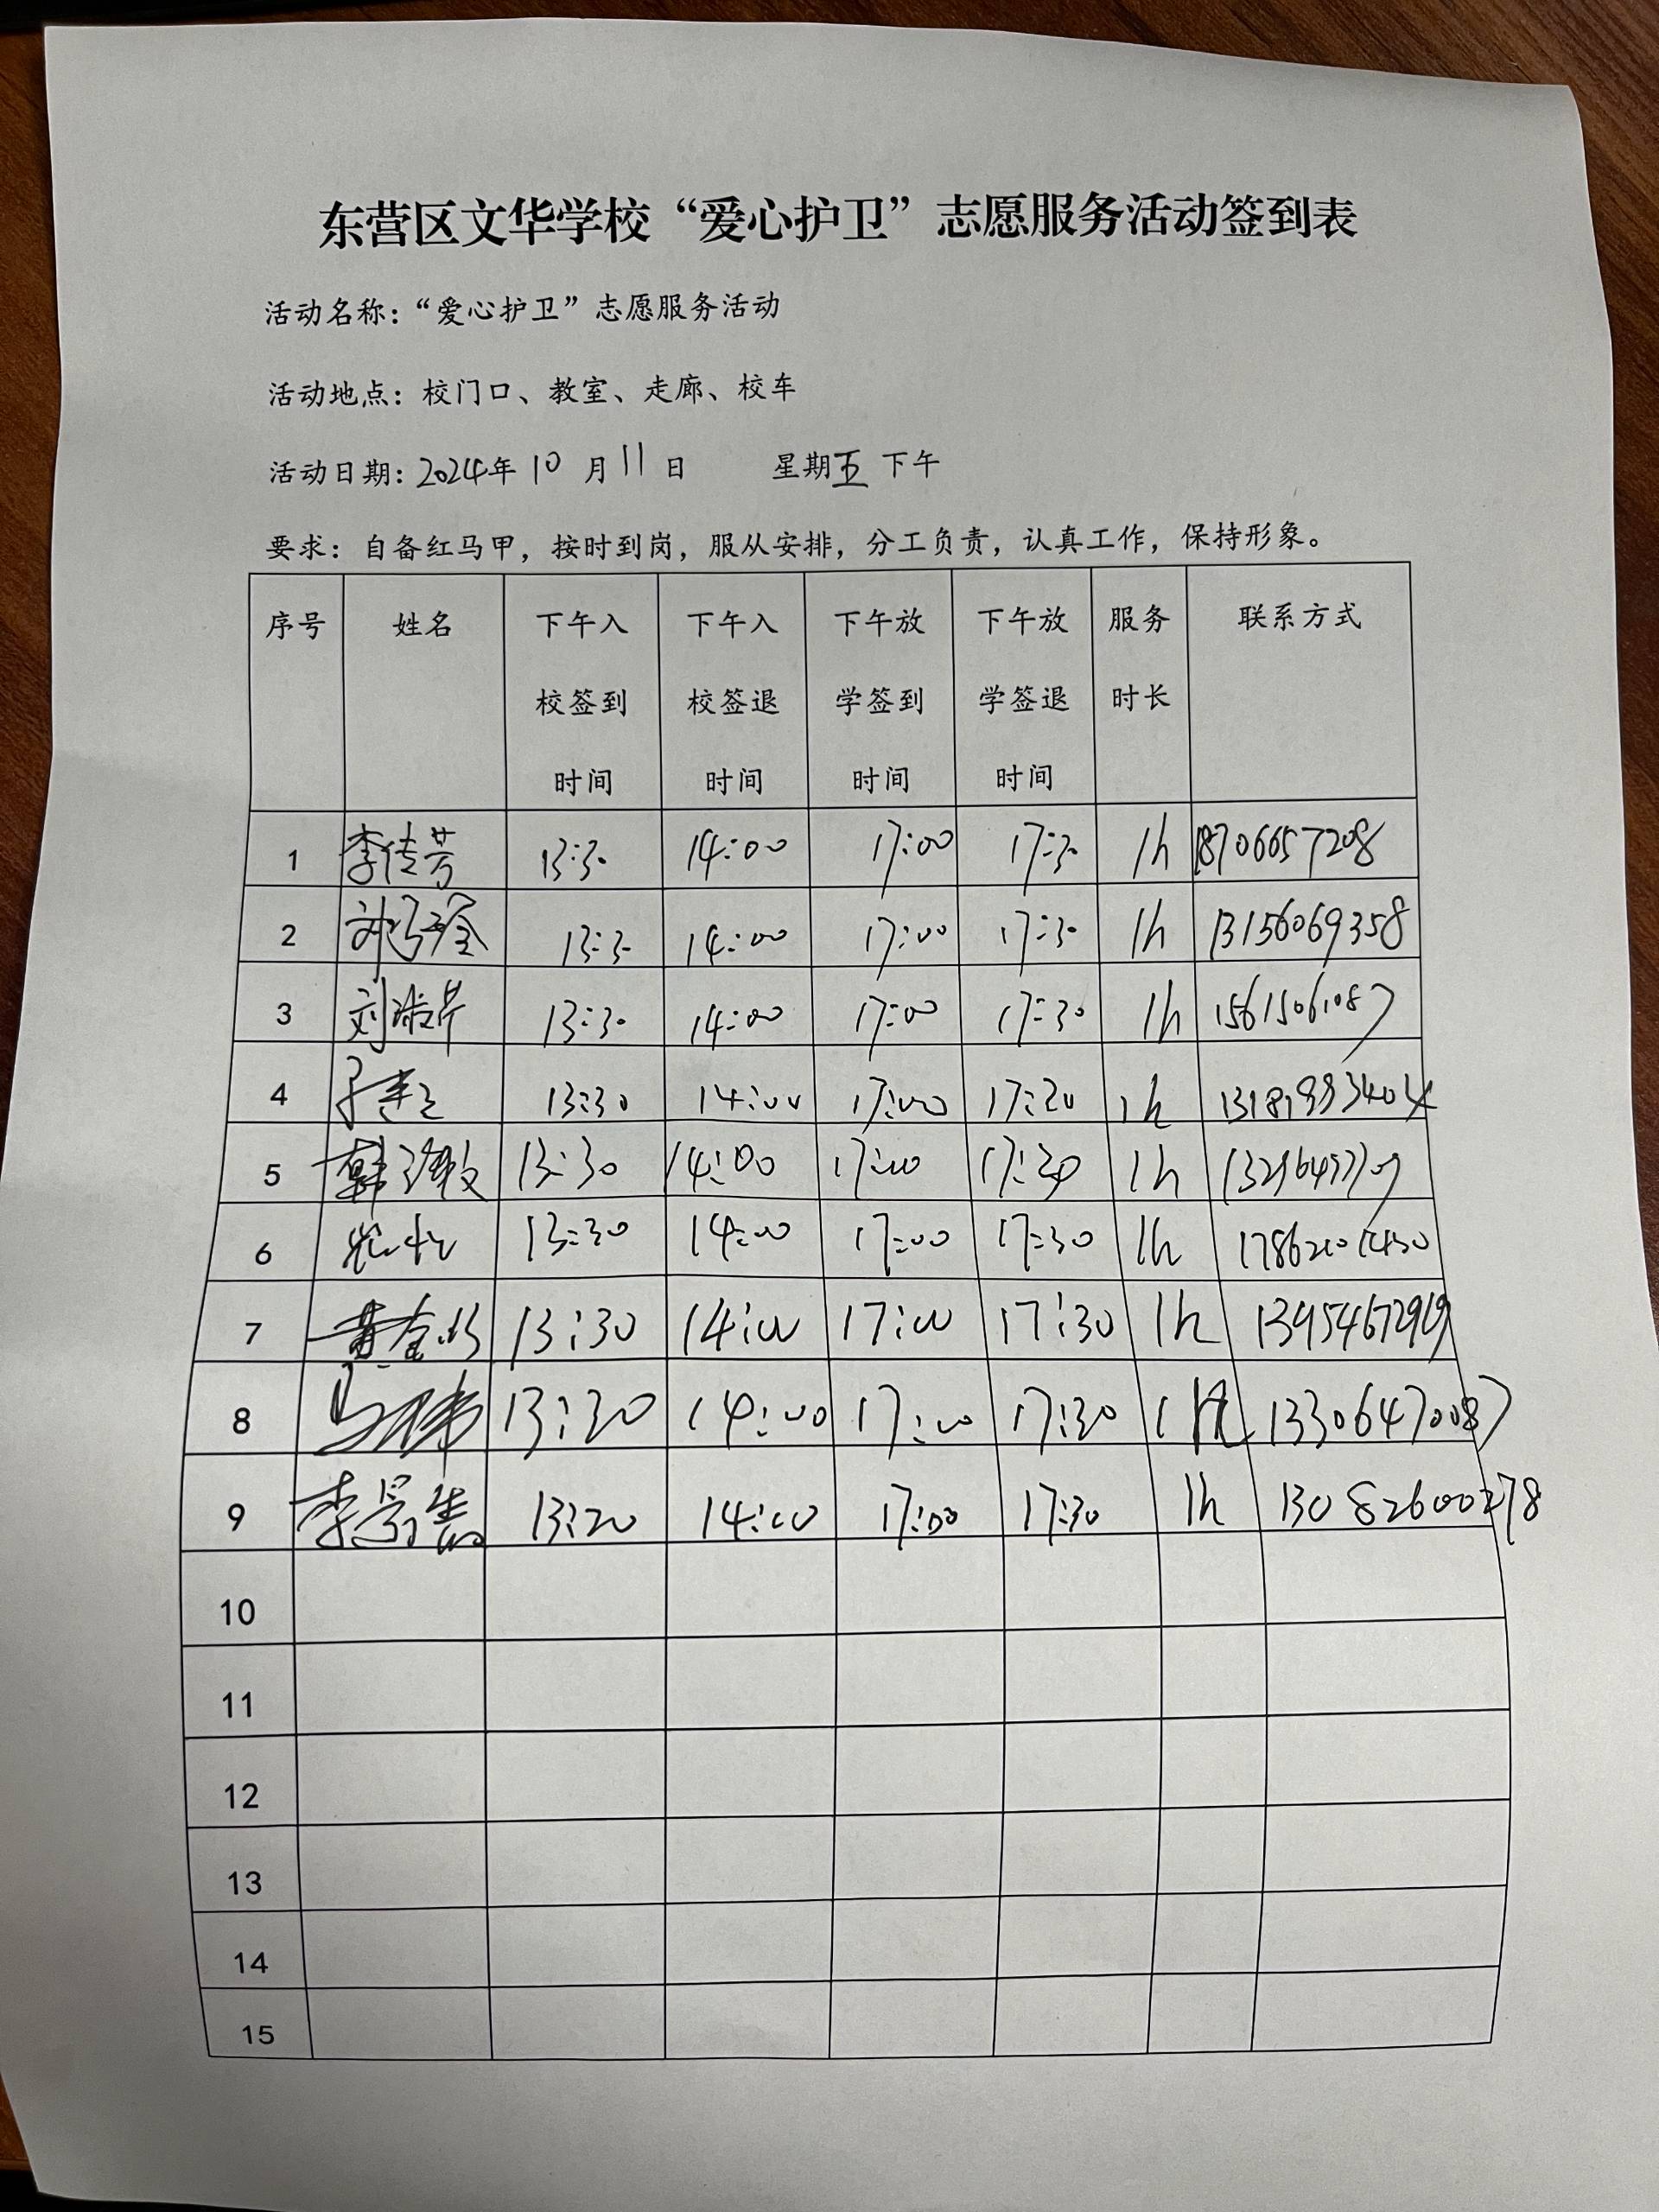 东营区文华学校“爱心护卫”志愿服务活动签到表
活动名称：“爱心护卫”志愿服务活动
活动地点：校门口、教室、走廊、校车
活动日期：2024年 10 月 11 日 星期五 下午
要求：自备红马甲，按时到岗，服从安排，分工负责，认真工作，保持形象。
序号 姓名 下午入校签到时间 下午入校签退时间 下午放学签到时间 下午放学签退时间 服务时长 联系方式
1 李传芳 13:30 14:00 17:00 17:30 1h 18706657208
2 13:30 14:00 17:00 17:30 1h 13156069358
3 13:30 14:00 17:00 17:30 1h 15615061087
4 13:30 14:00 17:00 17:20 1h
5 13:30 14:00 17:00 17:30 1h
6 13:30 14:00 17:00 17:30 1h
7 13:30 14:00 17:00 17:30 1h 13954672919
8 13:30 14:00 17:00 17:30 1h 13306470087
9 13:20 14:00 17:00 17:30 1h 13082600278
10
11
12
13
14
15